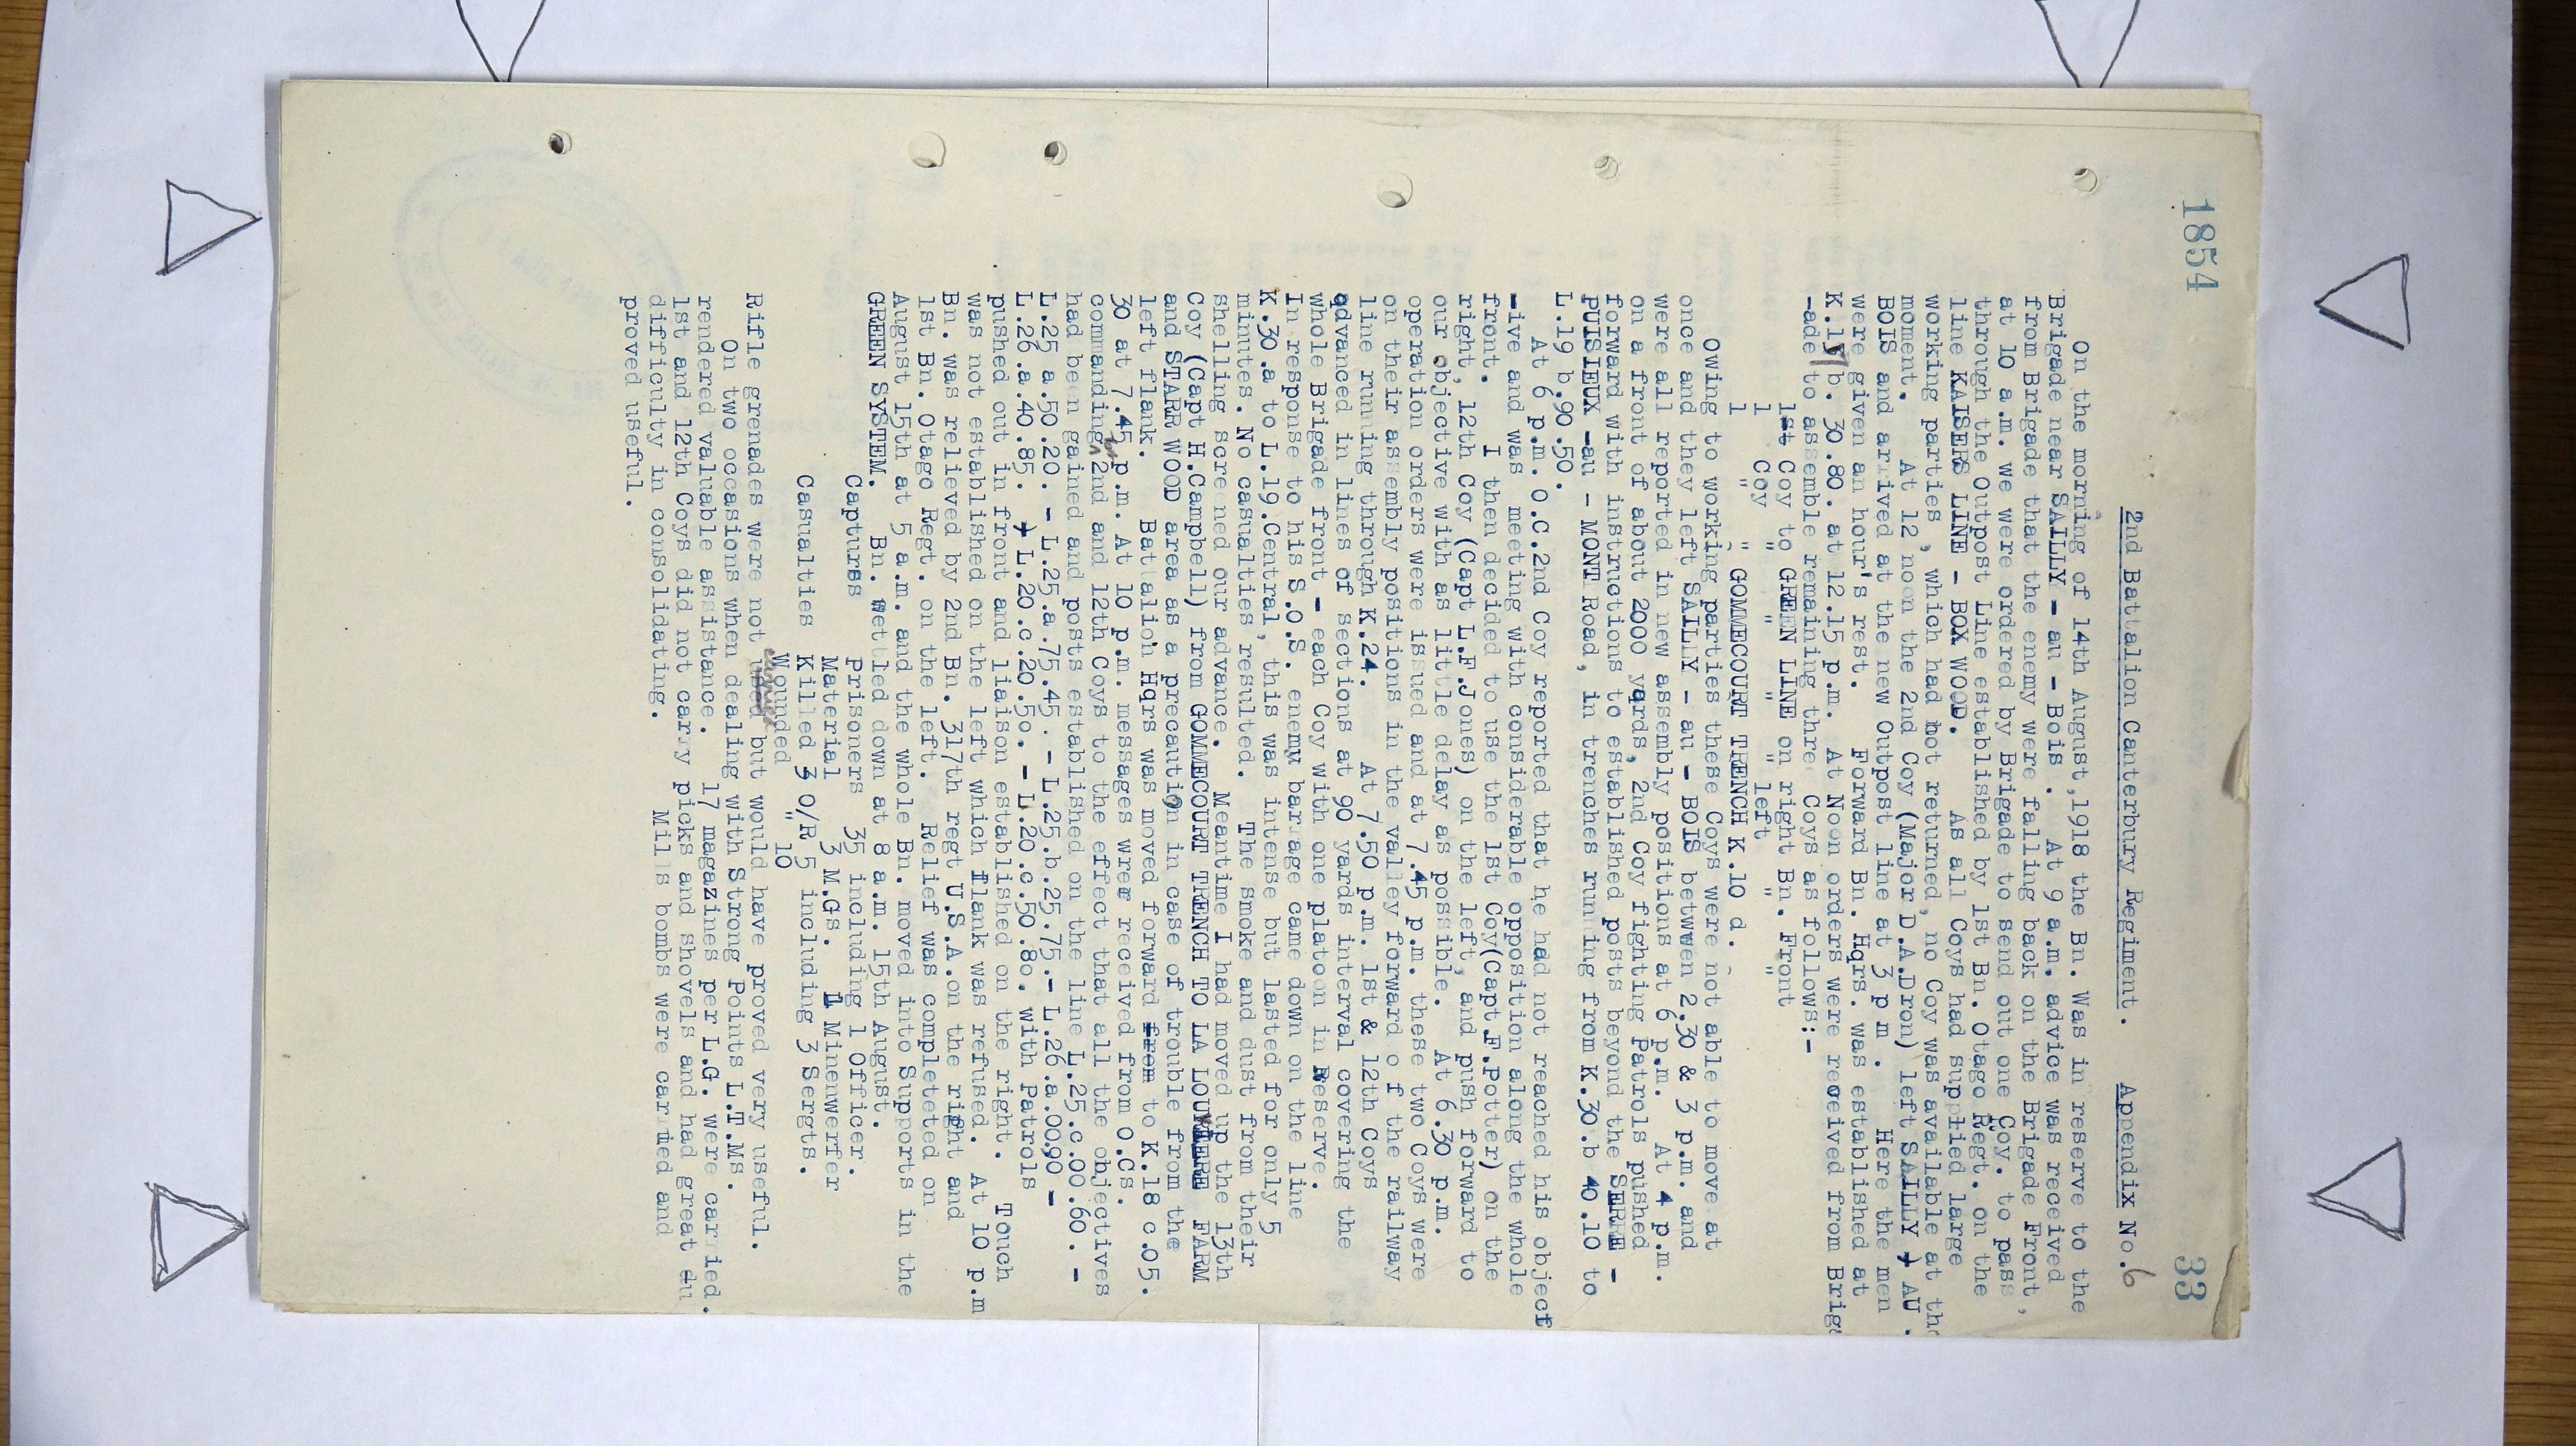 1854
33
2nd Battalion Canterbury Regiment. Appendix No.6
On the morning of 14th August,1918 the Bn. Was in reserve to the
Brigade near SAILLY - au - Bois . At 9 a.m. advice was received
from Brigade that the enemy were falling back on the Brigade Front,
at 10 a.m. we were ordered by Brigade to send out one Coy. to pass
through the Outpost Line established by 1st Bn. Otago Regt. on the
line KAISERS LINE - BOX WOOD. As all Coys had supplied large
working parties , which had not returned, no Coy was available at the
moment. At 12 noon the 2nd Coy (Major D.A.Dron) left SAILLY ) AU .
BOIS and arrived at the new Outpost line at 3 p m . Here the men
were given an hour's rest. Forward Bn. Hqrs. was established at
K.17 b. 30.80. at 12.15 p.m. At Noon orders were received from Brig
-ade to assemble remaining three Coys as follows:-
1st Coy to GREEN LINE on right Bn. Front
1 Coy " " " " left " "
1 " " GOMMECOURT TRENCH K.10 d.
Owing to working parties these Coys were not able to move at
once and they left SAILLY - au - BOIS betwwen 2.30 & 3 p.m. and
were all reported in new assembly positions at 6 p.m. At 4 p.m.
on a front of about 2000 yards, 2nd Coy fighting Patrols pushed
forward with instructions to established posts beyond the SERRE -
PUISIEUX -au - MONT Road, in trenches running from K.30.b 40.10 to
L.19 b.90.50.
At 6 p.m. O.C.2nd Coy reported that he had not reached his object
-ive and was meeting with considerable opposition along the whole
front. I then decided to use the 1st Coy(Capt.F.Potter) on the
right, 12th Coy (Capt L.F.Jones) on the left, and push forward to
our objective with as little delay as possible. At 6.30 p.m.
operation orders were issued and at 7.45 p.m. these two Coys were
on their assembly positions in the valley forward o f the railway
line running through K.24. At 7.50 p.m. 1st & 12th Coys
advanced in lines of sections at 90 yards interval covering the
whole Brigade front - each Coy with one platoon in Reserve.
In response to his S.O.S. enemy barrage came down on the line
K.30.a to L.19.Central, this was intense but lasted for only 5
minutes. No casualties resulted. The smoke and dust from their
shelling screened our advance. Meantime I had moved up the 13th
Coy (Capt H.Campbell) from GOMMECOURT TRENCH TO LA LOUVIERE FARM
and STARR WOOD area as a precaution in case of trouble from the
left flank. Battalion Hqrs was moved forward from to K.18 c.05.
30 at 7.45 p.m. At 10 p.m. messages wrer received from O.Cs.
commanding 2nd and 12th Coys to the effect that all the objectives
had been gained and posts established on the line L.25.c.00.60. -
L.25 a.50.20. - L.25.a.75.45. - L.25.b.25.75.- L.26.a.00,90 -
L.26.a.40.85. ) L.20.c.20.50. - L.20.c.50.80. with Patrols
pushed out in front and liaison established on the right. Touch
was not established on the left which flank was refused. At 10 p.m
Bn. was relieved by 2nd Bn. 317th regt U.S.A.on the right and
1st Bn. Otago Regt. on the left. Relief was completeted on
August 15th at 5 a.m. and the whole Bn. moved into Supports in the
GREEN SYSTEM. Bn. settled down at 8 a.m. 15th August.
Captures Prisoners 35 including 1 Officer.
Material 3 M.Gs. 1 Minenwerfer
Casualties Killed 3 O/R 5 including 3 Sergts.
Wounded " 10
Rifle grenades were not used but would have proved very useful.
On two occasions when dealing with Strong Points L.T.Ms.
rendered valuable assistance. 17 magazines per L.G. were carried.
1st and 12th Coys did not carry picks and shovels and had great du
difficulty in consolidating. Mills bombs were carried and
proved useful.